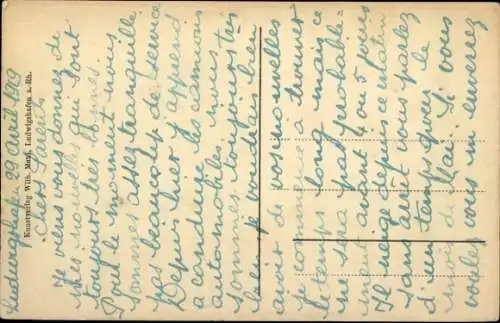 Ludwigshafen 29 avril 1919
Chers Parents
Je viens vous donnez de
mes nouvelles qui sont
toujours très bonnes.
Pour le moment nous
sommes assez tranquille
pas beaucoup de service
Depuis hier j'apprend
a conduire les camions
automobiles nous
sommes toujours très
bien je voudrais bien
avoir de vos nouvelles
je commence a trouver
le temps long mais ce
ne sera pas probable-
ment avant 4 ou 5 jours
Il neige depuis ce matin
sans arrêt vous parlez
d'un temps pour le
mois de Mai. Si vous
voulez vous m'enverrez
Kunstverlag Wilh. Ludwigshafen a. Rh.